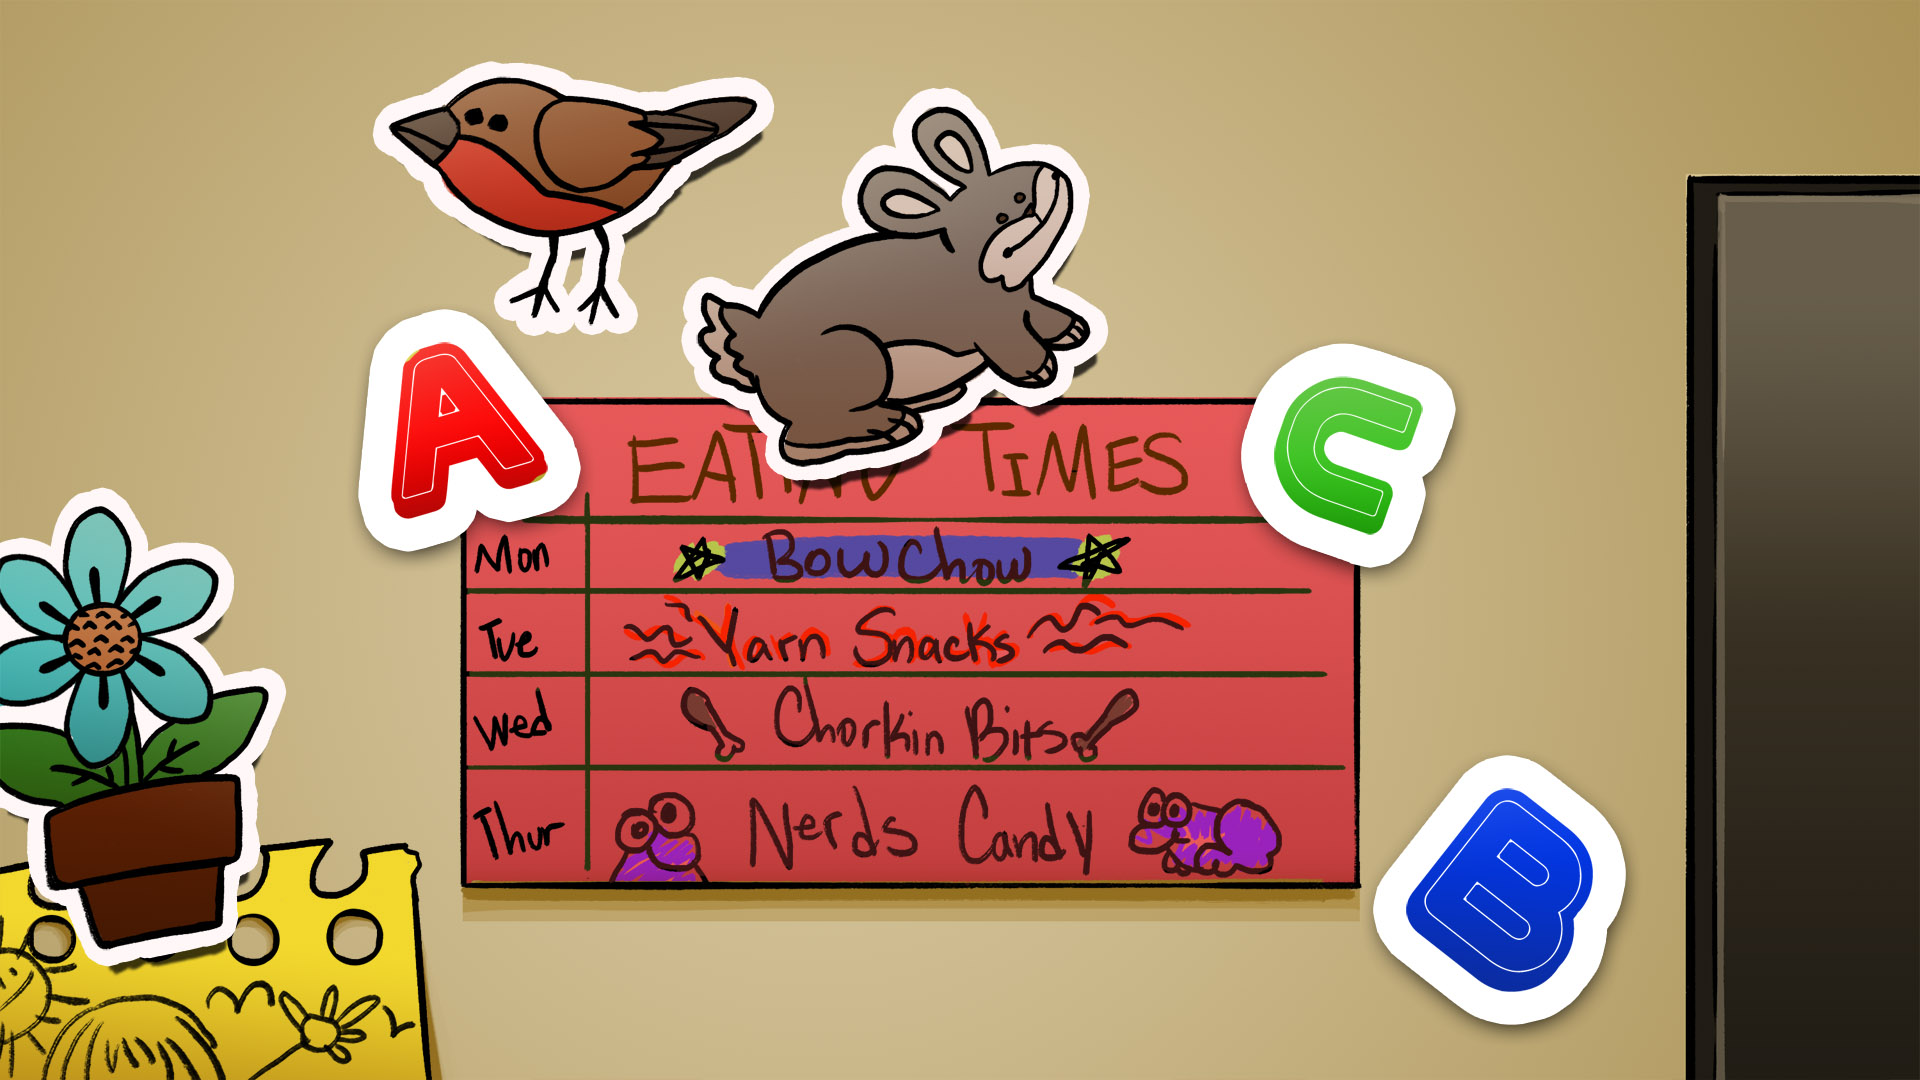 A
C
EATING TIMES
Mon BOWChow
Tue Yarn Snacks
Wed Chorkin Bits
Thur Nerds Candy
B